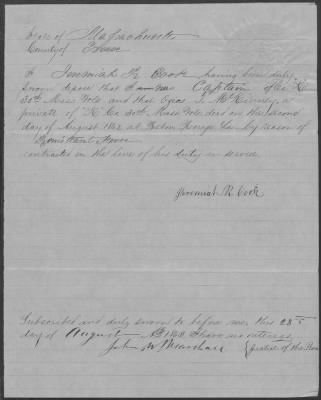 State of Massachusetts
County of Essex
I Jeremiah R Cook having been duly
sworn depose that I was Captain of Co K
30th Mass Vols and that
private of "K" Co 30th Mass Vols died on the second
day of August 1862 at Baton Rouge La by reason of
Remittent Fever
contracted in the line of his duty in service.
Jeremiah R Cook
Subscribed and duly sworn to before me, this 28th
day of August AD 1863 I have no interest
John W Justice of the Peace